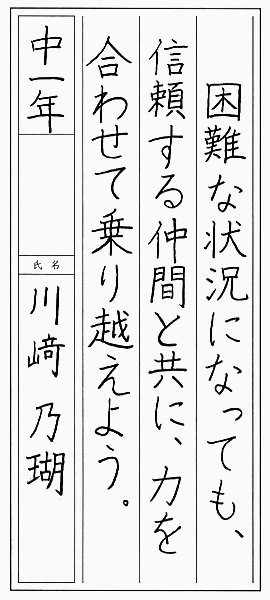 困難な状況になっても、
信頼する仲間と共に、力を
合わせて乗り越えよう。
中一年
氏名
川﨑乃瑚